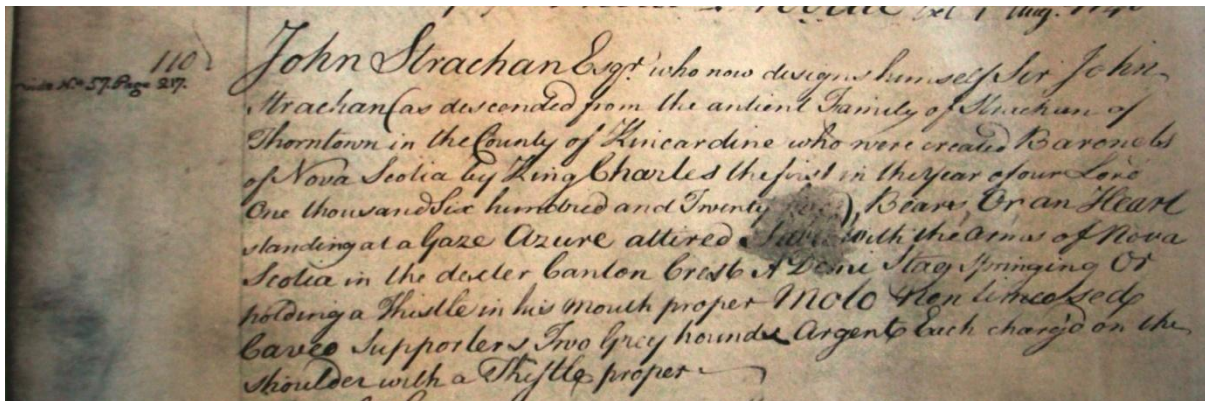 Ext. 1 Aug. 174
110
vide No. 57. Page 217.
John Strachan Esqr. who now designs himself Sir John
Strachan (as descended from the antient Family of Strachan of
Thorntown in the County of Kincardine who were created Baronets
of Nova Scotia by King Charles the first in the year of our Lord
One thousand Six hundred and Twenty ), Bears, Or an Heart
standing at a Gaze Azure attired with the arms of Nova
Scotia in the dexter Canton Crest A Demi Stag springing Or
holding a Thistle in his mouth proper Moto Non timeo sed
Caveo Supporters Two Grey hounds Argent Each charg'd on the
shoulder with a Thistle proper